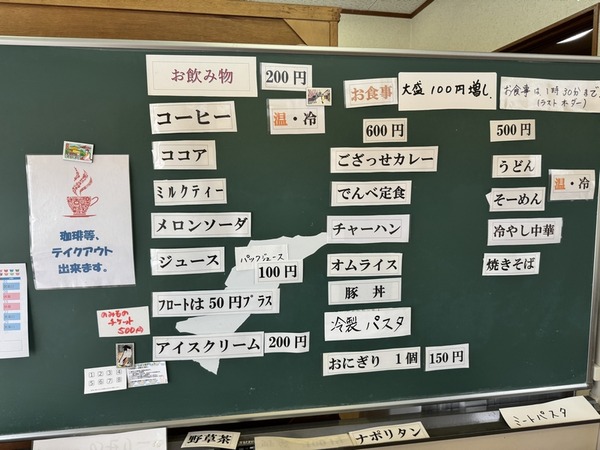 お飲み物 200円
コーヒー 温・冷
ココア
ミルクティー
メロンソーダ
ジュース
パックジュース
100円
フロートは50円プラス
アイスクリーム 200円
お食事 大盛100円増し
お食事は1時30分まで
(ラストオーダー)
600円
ござっせカレー
でんべ定食
チャーハン
オムライス
豚丼
冷製パスタ
おにぎり 1個 150円
500円
うどん
そーめん
温・冷
冷やし中華
焼きそば
珈琲等、
テイクアウト
出来ます。
のみもの
チケット
500円
①②③④
⑤⑥⑦⑧
野草茶
ナポリタン
ミートパスタ